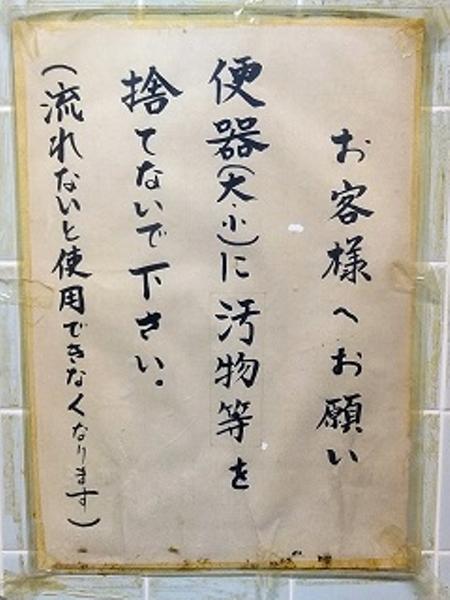 お客様へお願い
便器(大・小)に汚物等を
捨てないで下さい。
(流れないと使用できなくなります)